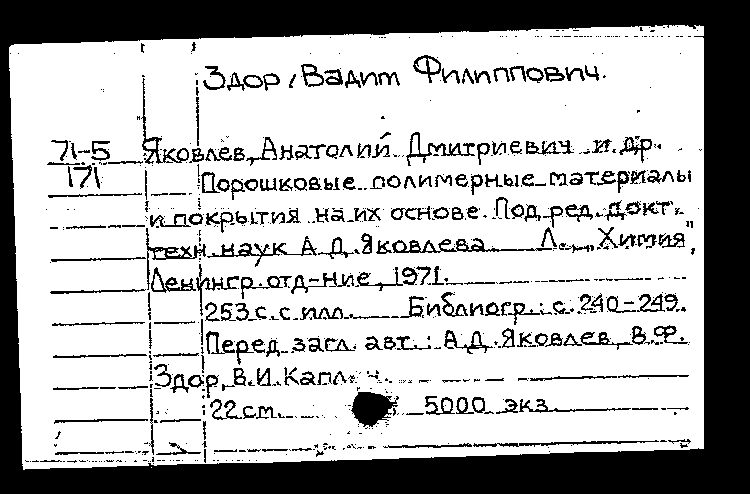 Здор, Вадим Филиппович.
71-5 Яковлев, Анатолий Дмитриевич и др.
171 Порошковые полимерные материалы
и покрытия на их основе. Под ред. докт.
техн. наук А. Д. Яковлева. Л., „Химия",
Ленингр. отд-ние, 1971.
253 с. с илл. Библиогр.: с. 240-249.
Перед загл. авт.: А.Д. Яковлев, В.Ф.
Здор, В.И. Каплан.
22 см. 5000 экз.